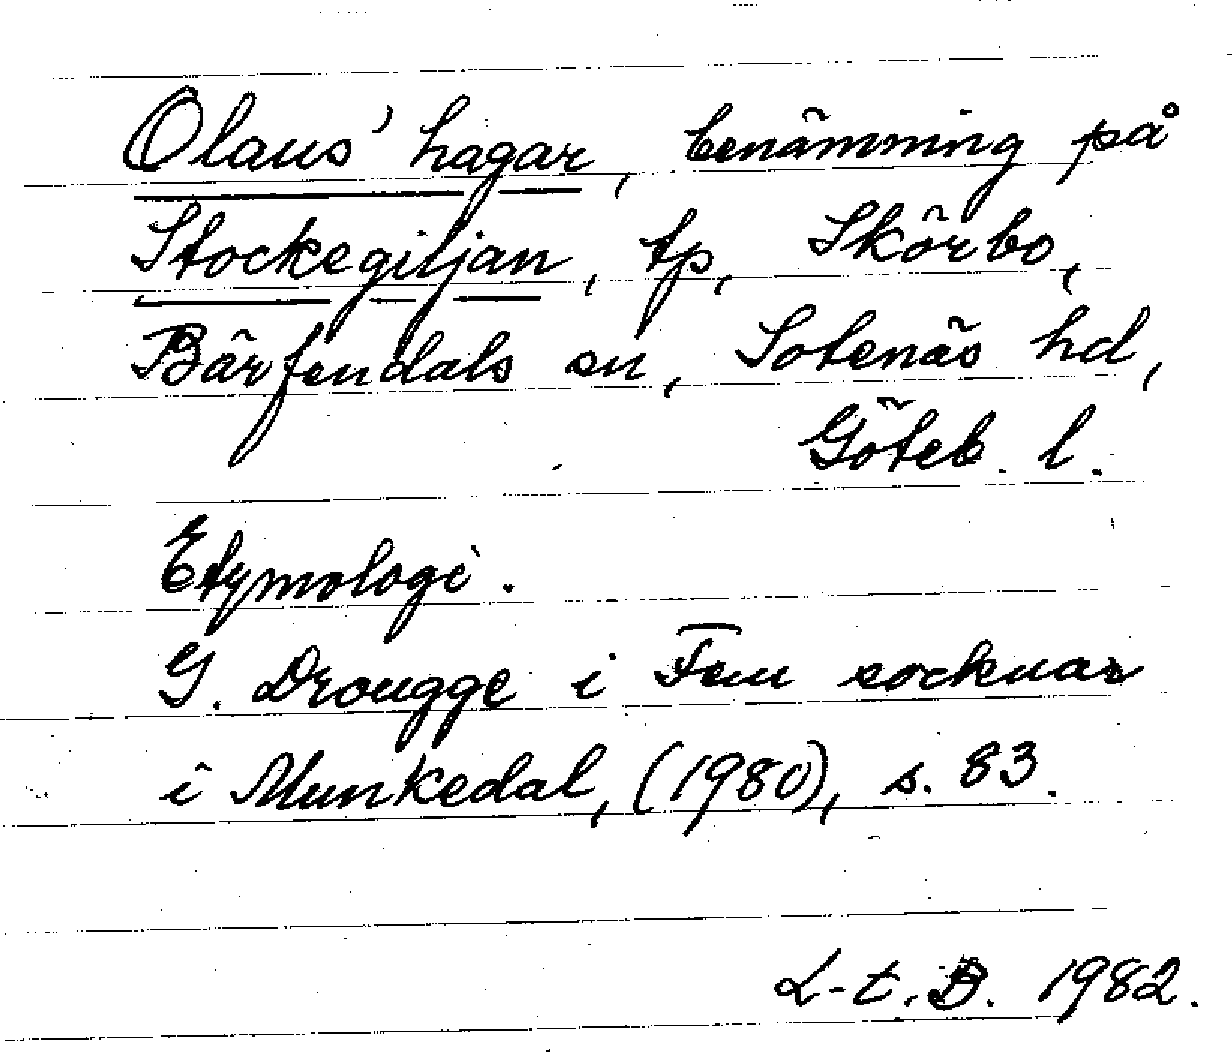 Olaus' hagar, benämning på
Stockegiljan, tp, Skörbo,
Bärfendals sn, Sotenäs hd,
Göteb. l.
Etymologi.
G. Drougge i Fem socknar
i Munkedal, (1980), s. 83.
L-t. B. 1982.